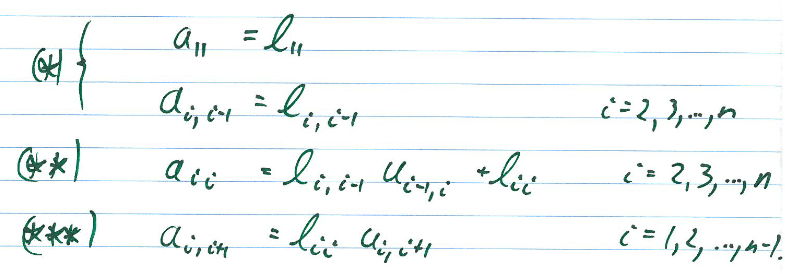 (*) { a₁₁ = l₁₁
a_{i,i-1} = l_{i,i-1} i = 2, 3, ..., n
(**) a_{ii} = l_{i,i-1} u_{i-1,i} + l_{ii} i = 2, 3, ..., n
(***) a_{i,i+1} = l_{ii} u_{i,i+1} i = 1, 2, ..., n-1.